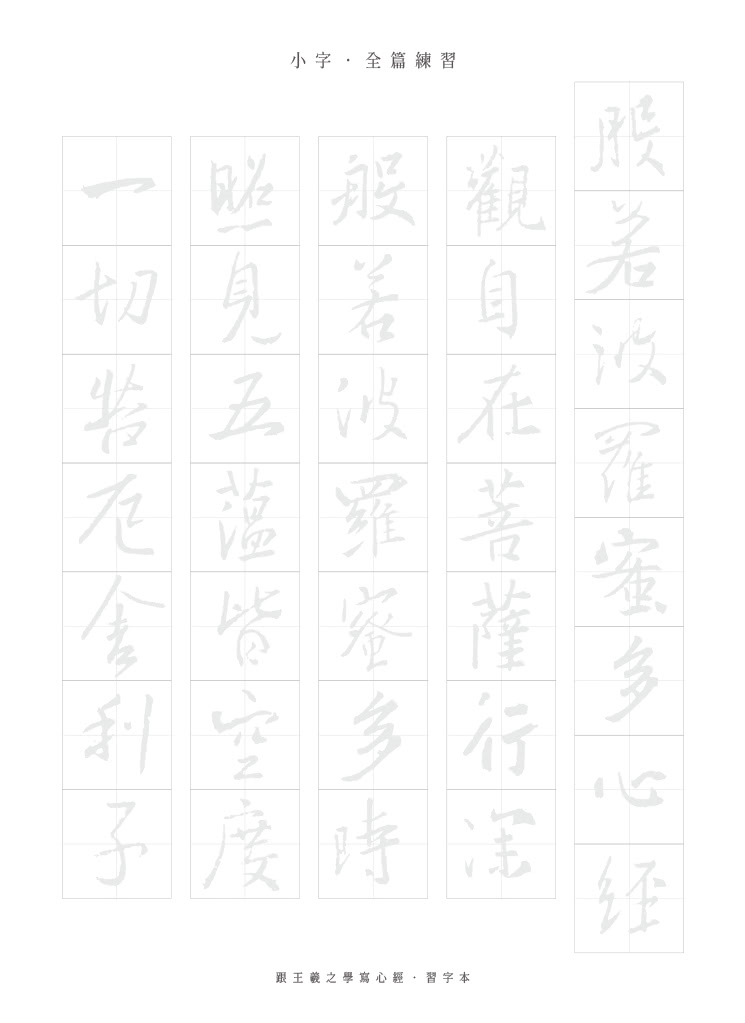 小字·全篇練習
般若波羅蜜多心經
觀自在菩薩行深
般若波羅蜜多時
照見五蘊皆空度
一切苦厄舍利子
跟王羲之學寫心經·習字本